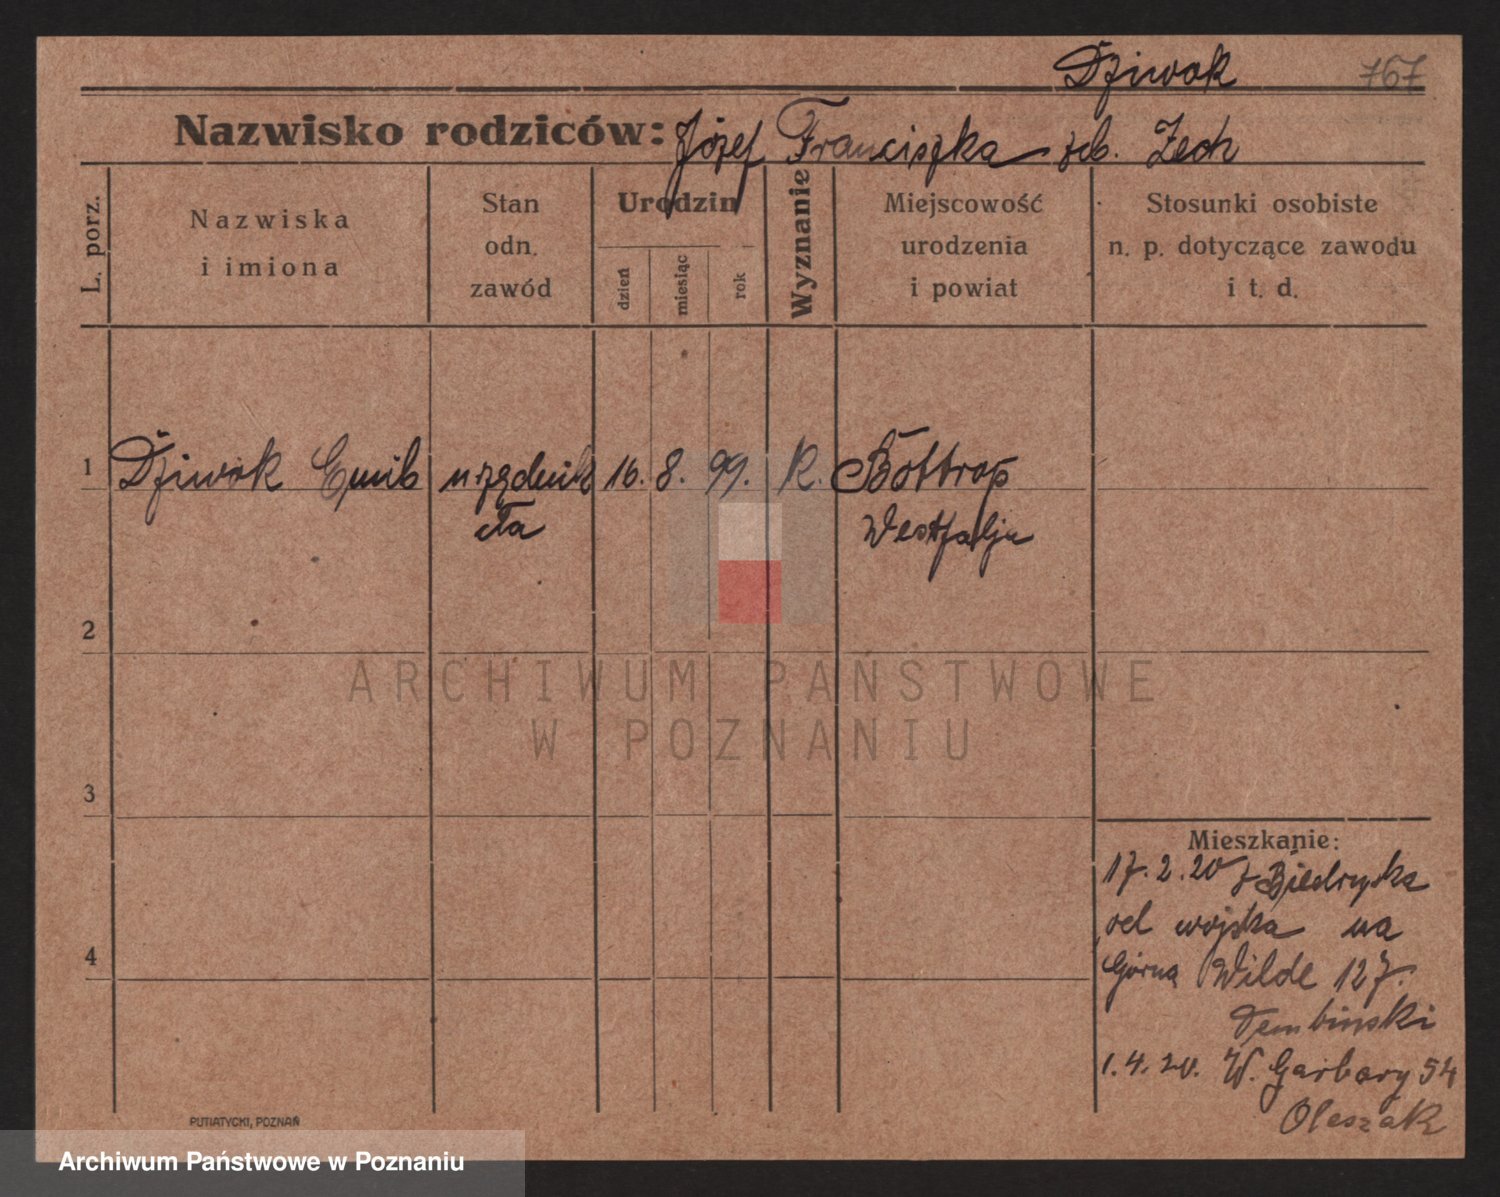 Dziwok 767
Nazwisko rodziców: Józef Franciszka zd. Zech
L. porz.
Nazwiska
i imiona
Stan
odn.
zawód
Urodzin
dzień
miesiąc
rok
Wyznanie
Miejscowość
urodzenia
i powiat
Stosunki osobiste
n. p. dotyczące zawodu
i t. d.
1 Dziwok Emil urzędnik 16. 8. 99. K. Bottrop
cła Westfalja
2
ARCHIWUM PAŃSTWOWE
W POZNANIU
3
Mieszkanie:
17.2.20 z Biedruska
od wojska na
4
Górna Wilde 127.
Dembinski
1.4.20. W. Garbary 54
Oleszak
PUTIATYCKI, POZNAŃ
Archiwum Państwowe w Poznaniu